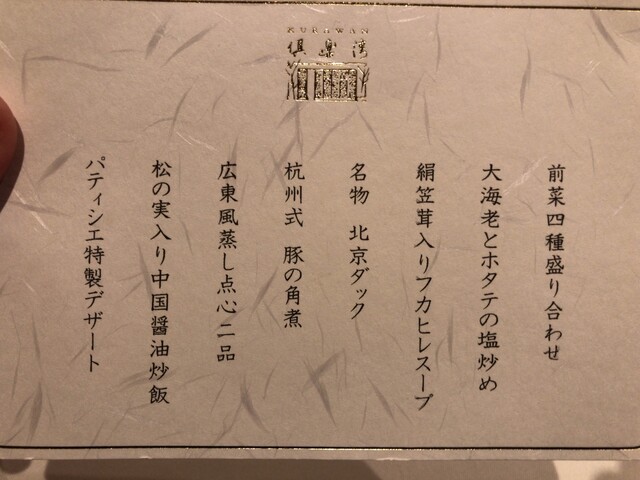 KURAWAN
倶楽湾
前菜四種盛り合わせ
大海老とホタテの塩炒め
絹笠茸入りフカヒレスープ
名物　北京ダック
杭州式　豚の角煮
広東風蒸し点心二品
松の実入り中国醤油炒飯
パティシエ特製デザート